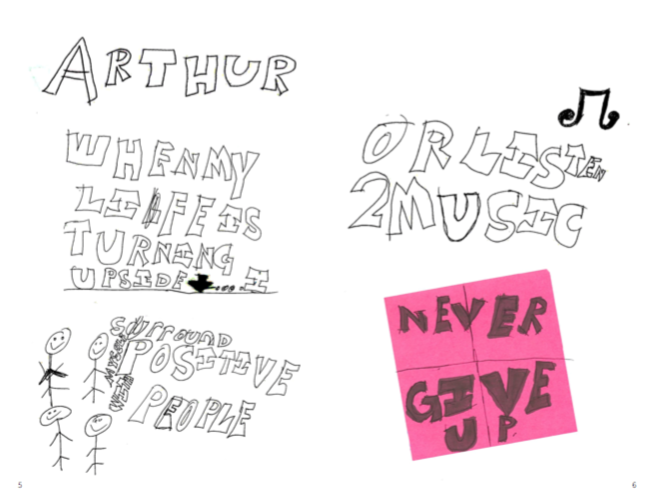 ARTHUR
WHEN MY
LIFE IS
TURNING
UPSIDE ..... I
SURROUND
MYSELF
WITH
POSITIVE
PEOPLE
5
OR LISTEN
2 MUSIC
NEVER
GIVE
UP
6